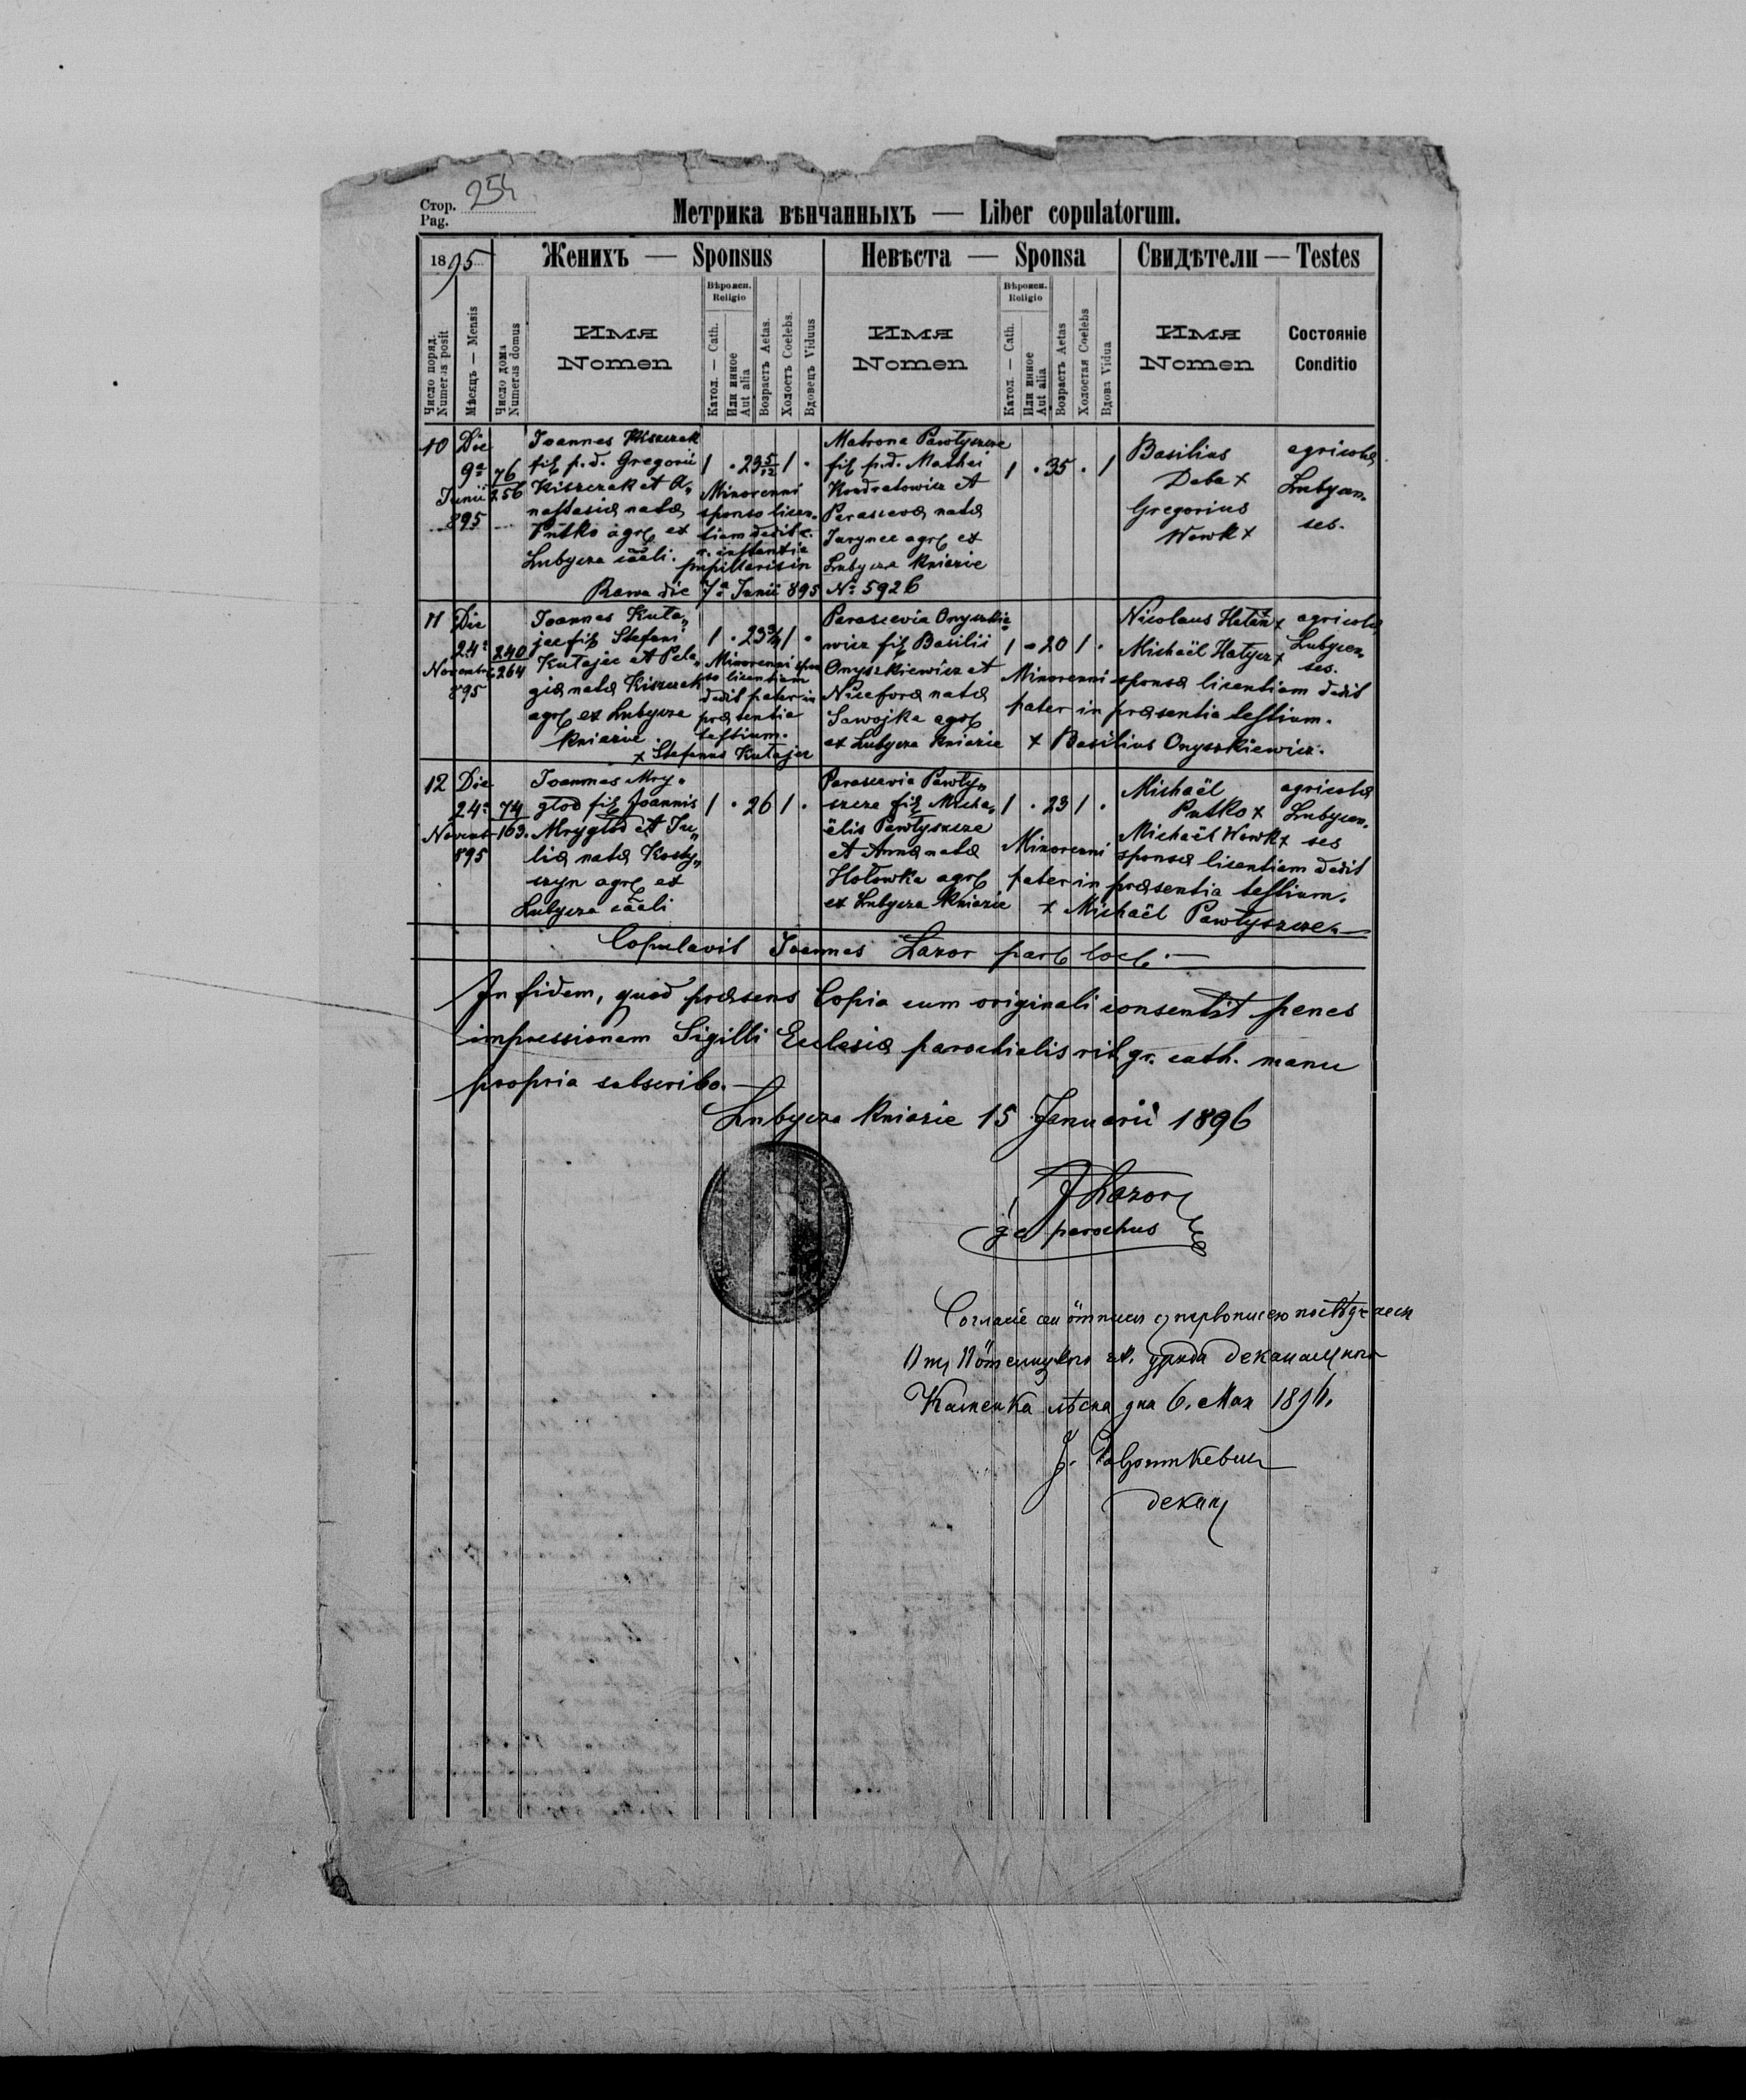 Стор. 254
Pag.
Метрика вѣнчанныхъ — Liber copulatorum.
1895
Женихъ — Sponsus
Невѣста — Sponsa
Свидѣтели — Testes
Число поряд. Numerus posit
Мѣсяцъ — Mensis
Число дома Numerus domus
Имя
Nomen
Вѣроисп.
Religio
Катол. — Cath.
Или инное Aut alia
Возрастъ Aetas.
Холость Coelebs.
Вдовецъ Viduus
Имя
Nomen
Вѣроисп.
Religio
Катол. — Cath.
Или инное Aut alia
Возрастъ Aetas
Холостая Coelebs
Вдова Vidua
Имя
Nomen
Состояніе
Conditio
10
Die
9ª
Junii
895
76
256
Joannes Kiszczak
fil p.d. Gregorii
Kiszczak et A„
nastasiæ natæ
Putko agr ex
Lubycza cäali.
1 . 23 5/12 1 .
Minorenni
sponso licen„
tiam dedit c.
r. instantia
pupillaris in
Rawa die 7ª Junii 895 Nº 5926
Matrona Pawłyszcze
fil p.d. Mathei
Kondratowicz et
Parascevæ natæ
Jarynec agr ex
Lubycza kniazie
1 . 35 . 1
Basilius
Deba +
Gregorius
Wowk +
agricolæ
Lubycen„
ses.
11
Die
24ª
Novembr
895
240
264
Joannes Kuta„
jec fil Stefani
Kułajec et Pela„
giæ natæ Kiszczak
agr ex Lubycza
kniazie.
1 . 23 3/4 1 .
Minorenni spon
so licentiam
dedit pater in
præsentia
testium.
+ Stefanus Kułajec
Parascevia Onyszkie„
wicz fil Basilii
Onyszkiewicz et
Niceforæ natæ
Sawojka agr
ex Lubycza kniazie
1 . 20 1 .
Minorenni sponsæ licentiam dedit
pater in præsentia testium.
+ Basilius Onyszkiewicz.
Nicolaus +
Michaël Hałycz +
agricolæ
Lubycen„
ses.
12
Die
24ª
Novemb
895
74
163.
Joannes Mry„
głod fil Joannis
Mrygłod et Ju„
liæ natæ Kosty„
szyn agr ex
Lubycza cäali
1 . 26 1 .
Parascevia Pawły„
szcze fil Micha„
ëlis Pawłyszcze
et Annæ natæ
Hołowka agr
ex Lubycza kniazie
1 . 23 1 .
Minorenni sponsæ licentiam dedit
pater in præsentia testium.
+ Michaël Pawłyszcze.
Michaël
Putko +
Michaël Wowk +
agricolæ
Lubycen„
ses
Copulavit Joannes Lazor par loc .—
In fidem, quod præsens Copia cum originali consentit penes
impressionem Sigilli Ecclesiæ parochialis rit gr. cath. manu
propria subscribo.—
Lubycza kniazie 15 Januarii 1896
J Lazor
gc parochus
Согласіе сеи отписи съ первописею посвѣдчаеся
Отъ Потелицкого уряда деканального
Каменка лѣсна дня 6. Мая 1896.
деканъ